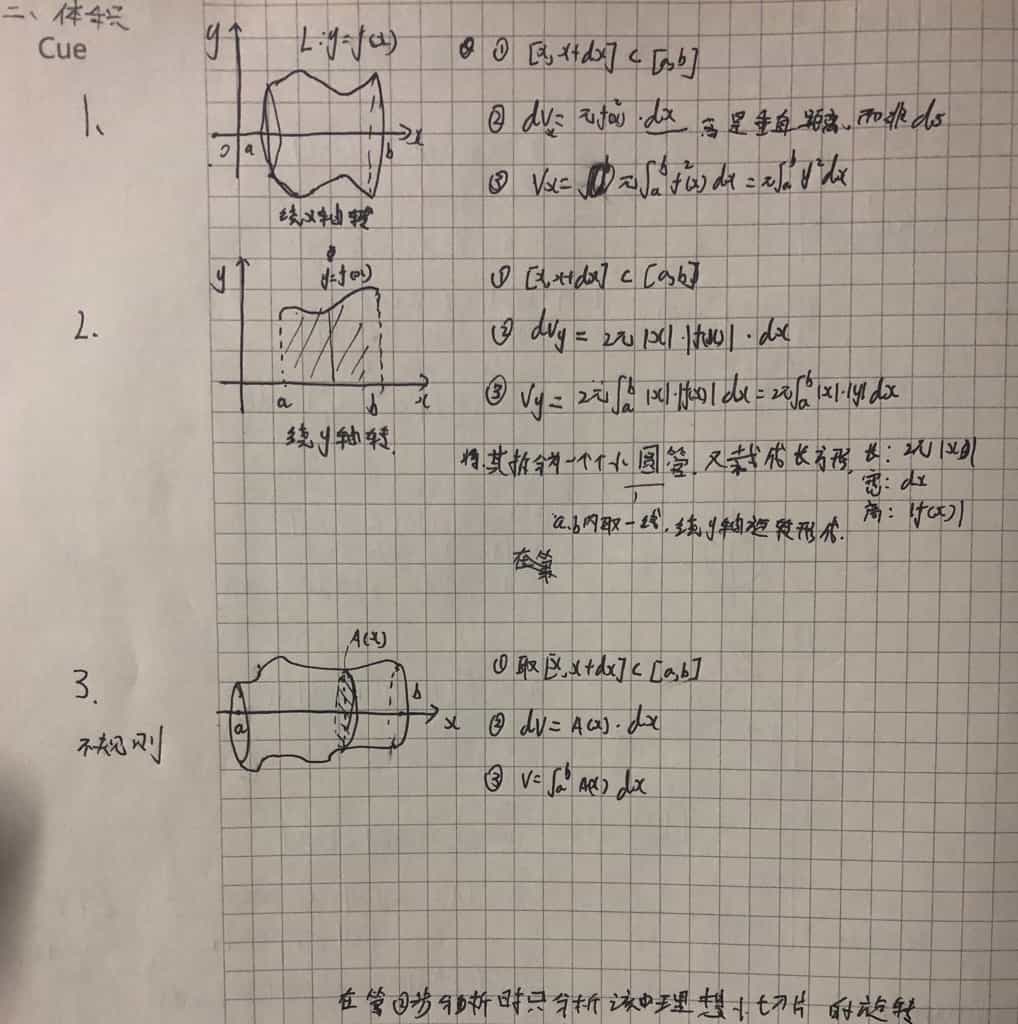 二、体积
Cue
1、
y
L：y=f(x)
0 a b x
绕x轴转
① [x, x+dx] ⊂ [a,b]
② dVx = πf²(x)·dx 高是垂直距离、而非ds
③ Vx = π∫ₐᵇ f²(x) dx = π∫ₐᵇ y²dx
2.
y
y=f(x)
a b x
绕y轴转
① [x, x+dx] ⊂ [a,b]
② dVy = 2π|x|·|f(x)|·dx
③ Vy = 2π∫ₐᵇ |x|·|f(x)| dx = 2π∫ₐᵇ |x|·|y| dx
将其拆分为一个个小圆管, 又 成长方形, 长: 2π|x|
宽: dx
高: |f(x)|
a.b内取一线, 绕y轴旋转形成.
3.
不规则
A(x)
a b x
① 取[x, x+dx] ⊂ [a,b]
② dV = A(x)·dx
③ V = ∫ₐᵇ A(x) dx
在第②步分析时只分析该 理想小切片的旋转